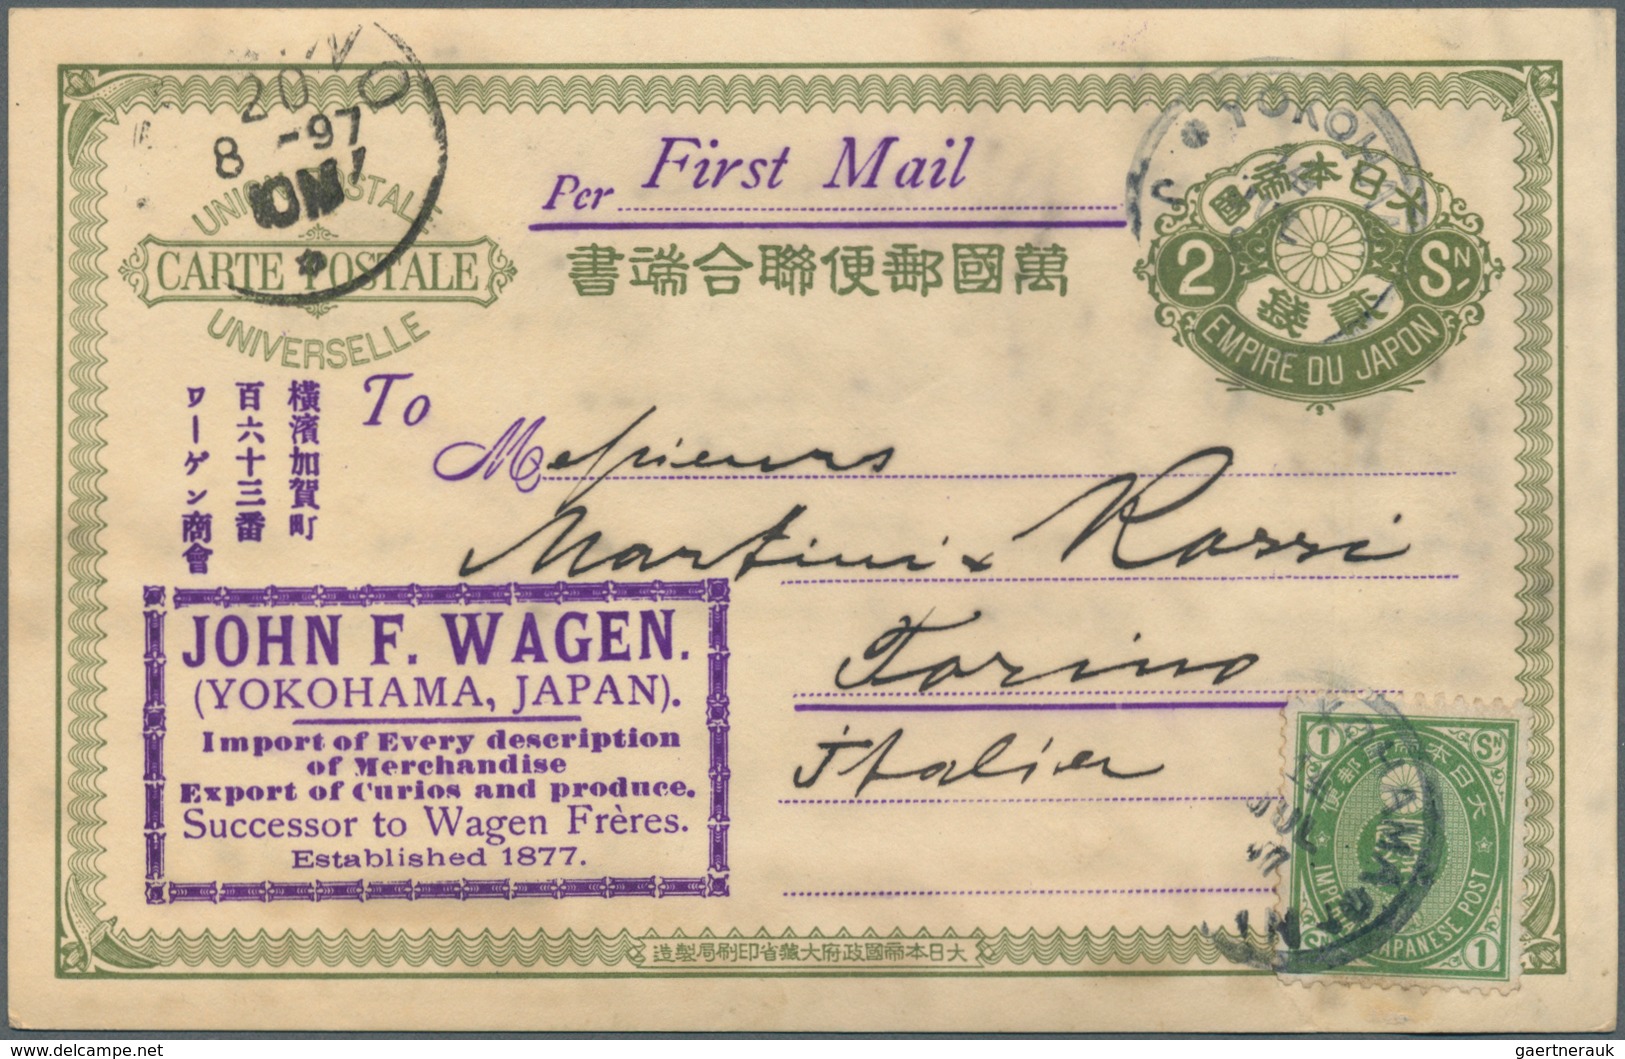 20
8 -97
10M
UNION POSTALE
CARTE POSTALE
UNIVERSELLE
Per First Mail
YOKOHAMA
書端合聯便郵國萬
國帝本日大
2 SN
貳錢
EMPIRE DU JAPON
橫濱加賀町
百六十三番
ワーゲン商會
To
Messieurs
Martini & Rossi
Torino
Italien
JOHN F. WAGEN.
(YOKOHAMA, JAPAN).
Import of Every description
of Merchandise
Export of Curios and produce.
Successor to Wagen Frères.
Established 1877.
1 SN
便郵國帝本日大
IMPERIAL JAPANESE POST
SN 1
YOKOHAMA
JUL
97
造製局刷印省藏大府政國帝本日大
www.delcampe.net
gaertnerauk